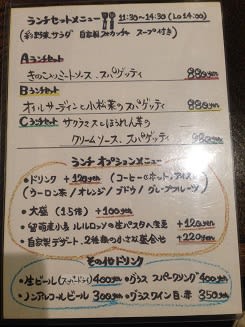 ランチセットメニュー 11:30~14:30 (Lo 14:00)
(彩野菜サラダ 自家製フォカッチャ スープ付き)
Aランチセット
きのこのミートソース、スパゲッティ 880yen
Bランチセット
オイルサーディンと小松菜のスパゲッティ 880yen
Cランチセット サクラマスとほうれん草の
クリームソース、スパゲッティ 880yen
ランチオプションメニュー
・ドリンク +120yen (コーヒー(ホット,アイス)/
(ウーロン茶/オレンジ/ブドウ/グレープフルーツ)
・大盛(1.5倍) +100yen
・留萌産小麦ルルロッソ生パスタへ変更 +120yen
・自家製デザート、2種類の小さな盛合せ +220yen
その他ドリンク
・生ビール(スーパードライ) 400yen ・グラススパークリング 400yen
・ノンアルコールビール 300yen ・グラスワイン白・赤 350yen